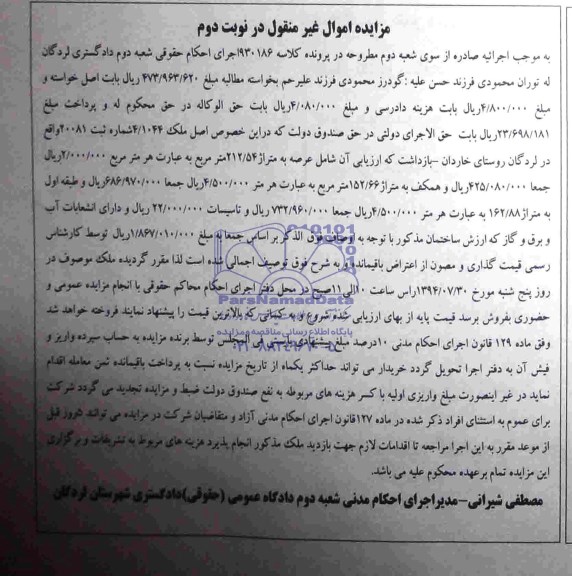 مزایده اموال غیر منقول در نوبت دوم
به موجب اجرائیه صادره از سوی شعبه دوم مطروحه در پرونده کلاسه ۹۳۰۱۸۶اجرای احکام حقوقی شعبه دوم دادگستری لردگان
له توران محمودی فرزند حسن علیه :گودرز محمودی فرزند علیرحم بخواسته مطالبه مبلغ ۴۷۳/۹۶۳/۶۲۰ ریال بابت اصل خواسته و
مبلغ ۴/۸۰۰/۰۰۰ریال بابت هزینه دادرسی و مبلغ ۴/۰۸۰/۰۰۰ریال بابت حق الوکاله در حق محکوم له و پرداخت مبلغ
۲۳/۶۹۸/۱۸۱ریال بابت حق الاجرای دولتی در حق صندوق دولت که دراین خصوص اصل ملک ۴/۱۰۴۴شماره ثبت ۲۰۰۸۱واقع
در لردگان روستای خاردان –بازداشت که ارزیابی آن شامل عرصه به متراژ۲۱۲/۵۴متر مربع به عبارت هر متر مربع ۲/۰۰۰/۰۰۰ریال
جمعا ۴۲۵/۰۸۰/۰۰۰ریال و همکف به متراژ۱۵۲/۶۶متر مربع به عبارت هر متر ۴/۵۰۰/۰۰۰ریال جمعا ۶۸۶/۹۷۰/۰۰۰ریال و طبقه اول
به متراژ ۱۶۲/۸۸ به عبارت هر متر ۴/۵۰۰/۰۰۰ریال جمعا ۷۳۲/۹۶۰/۰۰۰ ریال و تاسیسات ۲۲/۰۰۰/۰۰۰ ریال و دارای انشعابات آب
و برق و گاز که ارزش ساختمان مذکور با توجه به اوصاف فوق الذکر بر اساس جمعا به مبلغ ۱/۸۶۷/۰۱۰/۰۰۰ریال توسط کارشناس
رسمی قیمت گذاری و مصون از اعتراض باقیمانده و به شرح فوق توصیف اجمالی شده است لذا مقرر گردیده ملک موصوف در
روز پنج شنبه مورخ ۱۳۹۴/۰۷/۳۰راس ساعت ۱۰الی۱۱صبح در محل دفتر اجرای احکام محاکم حقوقی با انجام مزایده عمومی و
حضوری بفروش برسد قیمت پایه از بهای ارزیابی شده شروع و به کسانی که بالاترین قیمت را پیشنهاد نمایند فروخته خواهد شد
وفق ماده ۱۲۹ قانون اجرای احکام مدنی ۱۰درصد مبلغ پیشنهادی بایستی فی المجلس توسط برنده مزایده به حساب سپرده واریز و
فیش آن به دفتر اجرا تحویل گردد خریدار می تواند حداکثر یکماه از تاریخ مزایده نسبت به پرداخت باقیمانده ثمن معامله اقدام
نماید در غیر اینصورت مبلغ واریزی اولیه با کسر هزینه های مربوطه به نفع صندوق دولت ضبط و مزایده تجدید می گردد شرکت
برای عموم به استثنای افراد ذکر شده در ماده ۱۲۷قانون اجرای احکام مدنی آزاد و متقاضیان شرکت در مزایده می توانند ۵روز قبل
از موعد مقرر به این اجرا مراجعه تا اقدامات لازم جهت بازدید ملک مذکور انجام پذیرد هزینه های مربوط به تشریفات و برگزاری
این مزایده تمام برعهده محکوم علیه می باشد.
مصطفی شیرانی–مدیراجرای احکام مدنی شعبه دوم دادگاه عمومی (حقوقی)دادگستری شهرستان لردگان
ParsNamadData
پایگاه اطلاع رسانی مناقصه و مزایده